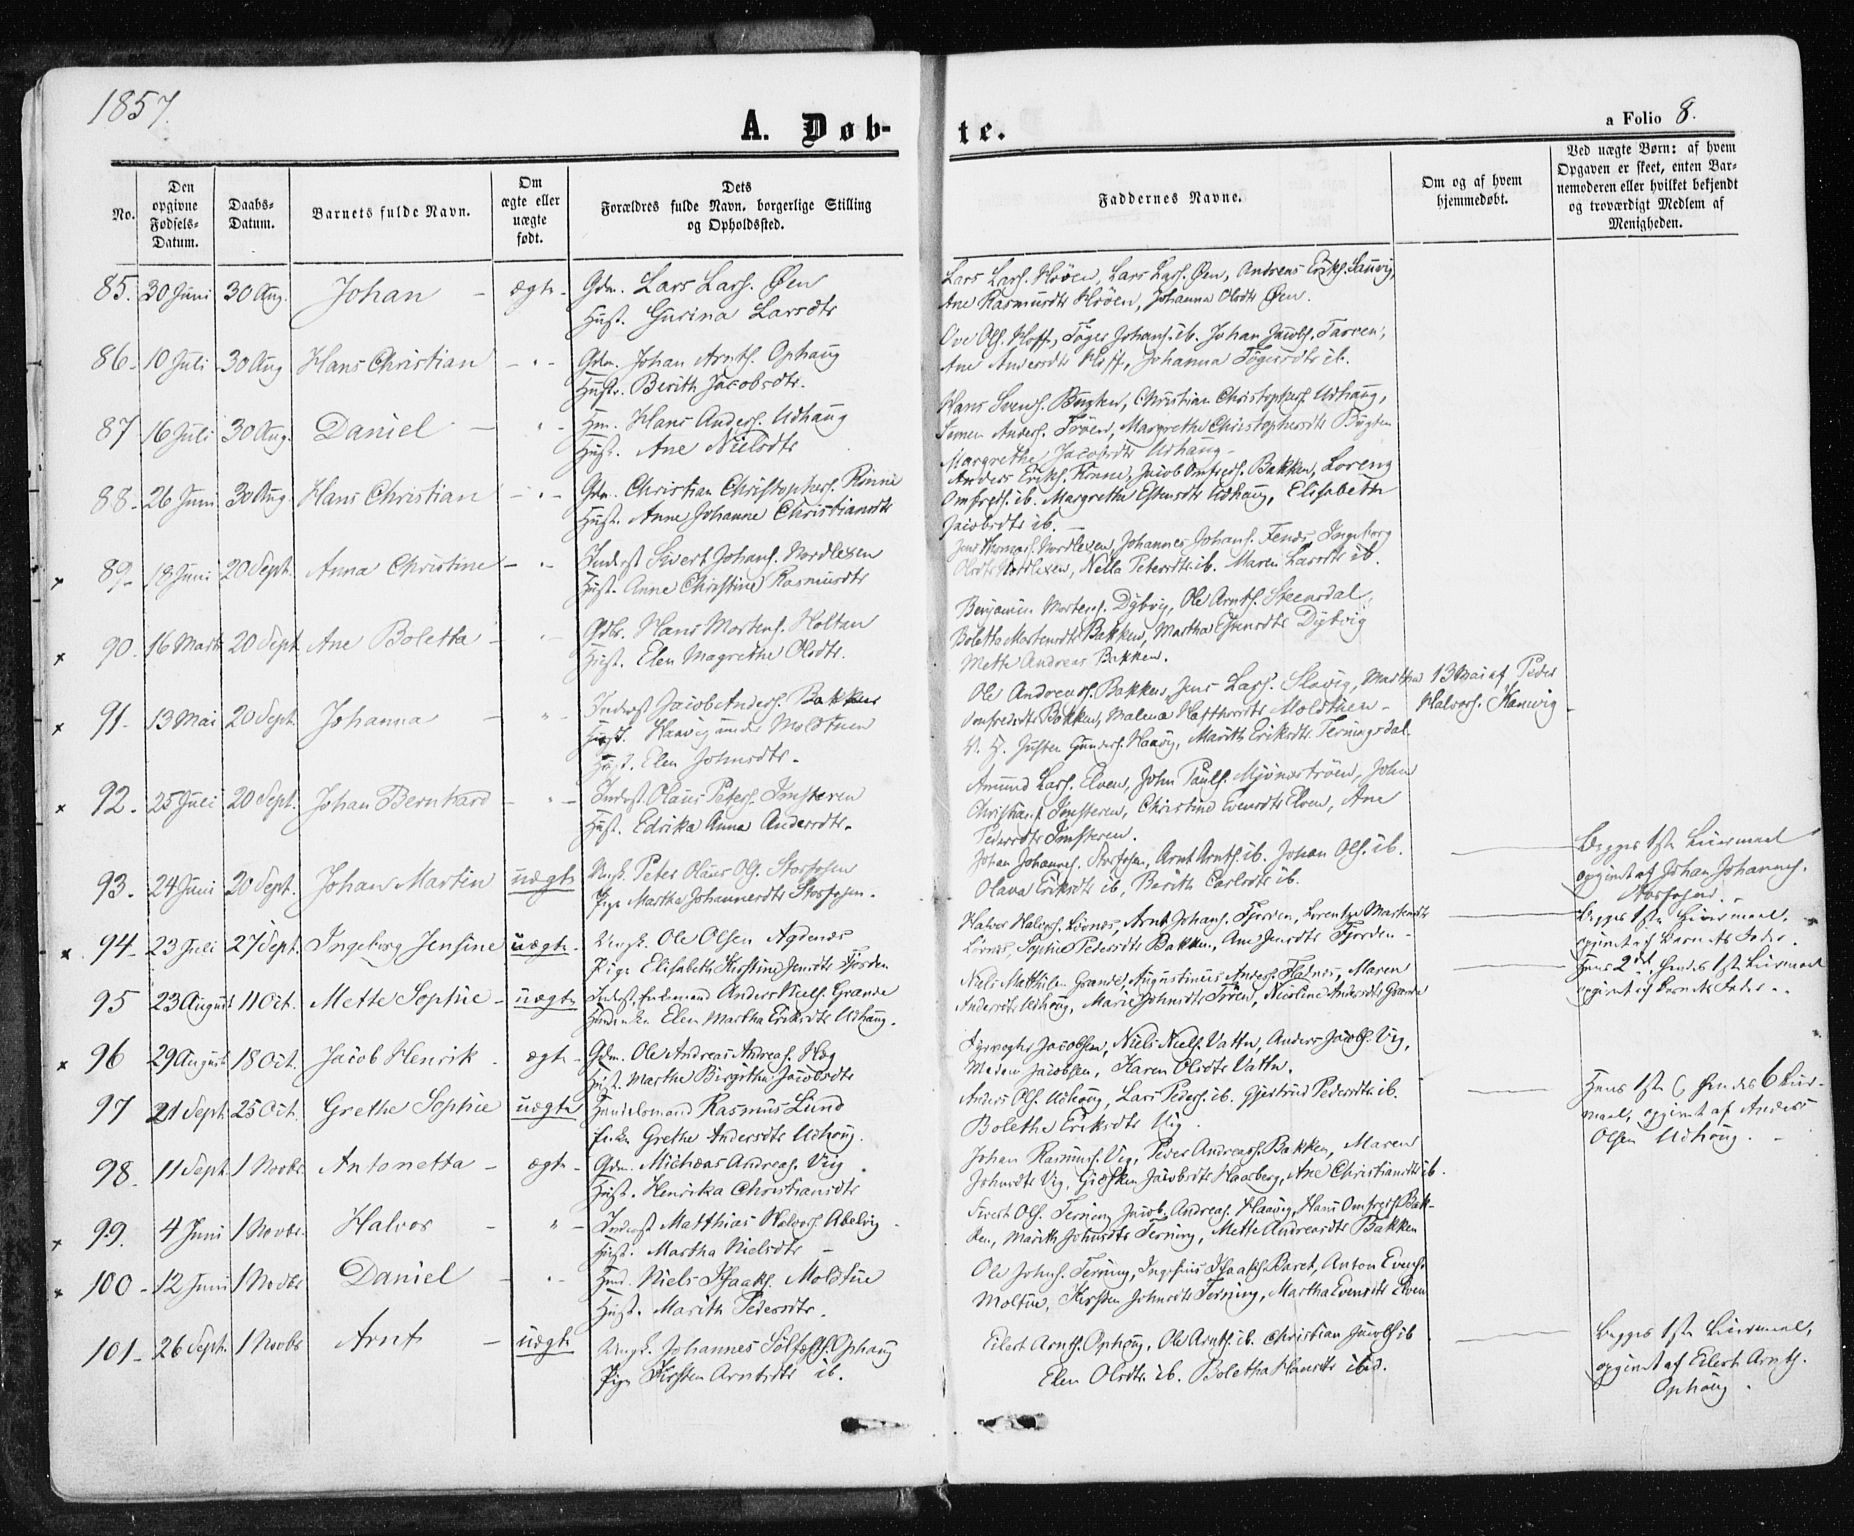 1857.
A. Døb-
te.
a Folio 8.
No.
Den opgivne Fødsels-Datum.
Daabs-Datum.
Barnets fulde Navn.
Om ægte eller uægte født.
Dets Forældres fulde Navn, borgerlige Stilling og Opholdssted.
Faddernes Navne.
Om og af hvem hjemmedøbt.
Ved uægte Børn: af hvem Opgaven er skeet, enten Barnemoderen eller hvilket bekjendt og troværdigt Medlem af Menigheden.
85. 30 Juni 30 Aug. Johan - ægte - Gdm. Lars Lars. Øen
Hust. Gurina Larsdtr
Lars Lars. Høøen, Lars Lars. Øen, Andreas Eriks.
Ane Rasmusdtr Høøen, Johanna Olsdtr Øen.
86 - 10 Juli 30 Aug Hans Christian - " - Gdm. Johan Arnts. Ophaug
Hustr. Berith Jacobsdtr.
Ove Ols. Hoff, Johans. ib. Johan Jacobs. Tarven,
Ane Andersdtr Hoff, Johanna ib.
87 16 Juli 30 Aug. Daniel - " - Hm. Hans Anders. Udhaug
Hust. Ane Nielsdtr
Hans Svends. Bugten, Christian Christophers. Udhaug,
Anders. Troen, Margrethe Christophersdtr Bugten
Margrethe Jacobsdtr Udhaug -
88 - 26 Juni 30 Aug Hans Christian - " - Gdm. Christian Christophers. Rønne
Hust. Anne Johanne Christiansdtr
Anders Eriks. Rønne, Jacob Omfreds. Bakken, Lorens
Omfreds. ib. Margrethe Estensdtr Udhaug, Elisabeth
Jacobsdtr ib. -
x 89 - 18 Juni 20 Sept. Anna Christine - " - Inderst Sivert Johans. Nordlexen
Hust. Anne Christine Rasmusdtr
Jens Thomas. Nordlexen, Johannes Johans. Ingeborg
Olsdtr Nordlexen, Nella Petersdtr ib. Maren Larsdtr ib.
x 90. 16 Marts 20 Sept Ane Boletta - " - Gdbr. Hans Mortens. Holtan
Hust. Elen Magrethe Olsdtr.
Benjamin Mortens. Dybvig, Ole Arnts. Steensdal,
Boletta Mortensdtr Bakken, Martha Estensdtr Dybvig
Mette Andreas Bakken.
x 91. 13 Mai 20 Sept Johanna - " - Inderst Jacob Anders. Bakken
Hust. Haavig under Moldtuen
Hust. Elen Johnsdtr -
Ole Andreas. Bakken, Jens Lars. Slavig, Martha
Omfredsdtr Bakken, Malena Moldtuen -
V. H. Justen Gunders. Haavig, Marith Eriksdtr Terningsdal.
13 Mai af Peder
Halvors. Hamvig -
x 92 - 25 Juli 20 Sept. Johan Bernhard - " - Inderst. Olaus Peters. Imsteren
Hust. Edrika Anna Andersdtr.
Amund Lars. Elven, John Pauls. Mjønestrøen, John
Christians. Imsteren, Christine Evensdtr Elven, Ane
Pedersdtr Imsteren.
93. 24 Juni 20 Sept. Johan Martin uægte Ungk. Peter Olaus Ols. Storfosen
Pige Martha Johannesdtr Storfosen.
Johan Johannes. Storfosen, Arnt Arnts. ib. Johan Ols. ib.
Olava Eriksdtr ib, Berith Carlsdtr ib.
Begges 1ste Leiermaal
opgivet af Johan Johannes.
Storfosen.
x 94 - 23 Juli 27 Sept. Ingeborg Jensine uægte. Ungk. Ole Olsen Agdenæs
Pige Elisabeth Kirstine Jensdtr Fjorden
Halvor Halvors. Lørnæs, Arnt Johans. Fjorden, Lorentze Martensdtr
Lørnæs, Sophie Pedersdtr Bakken, Ane Jensdtr Fjorden -
Begges 1ste Leiermaal,
opgivet af Barnets Fader.
95 23 August 11 Oct. Mette Sophie - uægte Inderst. Enkemand Anders Niels. Grande
Elen Martha Eriksdtr Udhaug.
Niels Matthias. Grande, Augustinus Anders. Maren
Andersdtr Udhaug, Marie Johnsdtr Nicoline Andersdtr Grande
Hans 2det, Hendes 1ste Leiermaal
opgivet af Barnets Fader.
x 96 29 August 18 Oct. Jacob Henrik - ægte - Gdm. Ole Andreas Andreas. Hæg
Hust. Marthe Birgitha Jacobsdtr
Fyrvogter Jacobsen, Niels Niels. Vattn, Anders Jacobs. Vig,
Madam Jacobsen, Karen Olsdtr Vattn.
97 21 Sept. 25 Oct. Grethe Sophie uægte Handelsmand Rasmus Lund
Enke Grethe Andersdtr Udhaug.
Anders Ols. Udhaug, Lars Peders. ib. Gjertrud Pedersdtr ib.
Bolethe Eriksdtr Vig.
Hans 1ste & Hendes 6 Leir-
maal, opgivet af Anders
Olsen Udhaug. -
98. 11 Sept. 1 Novbr Antonetta - ægte - Gdm. Michael Andreas. Vig.
Hust. Henrika Christiansdtr
Johan Rasmus. Vig, Peder Andreas. Bakken, Maren
Johnsdtr Vig, Jacobsdtr Haarberg, Ane Christiansdtr ib.
x 99. 4 Juni 1 Novbr Halvor - " - Inderst Matthias Halvors. Abelvig
Hust. Martha Nielsdtr -
Sivert Ols. Terning, Jacob Andreas. Haavig, Hans Omfreds. Bak-
ken, Marith Johnsdtr Terning, Mette Andreasdtr Bakken
x 100 - 12 Juni 1 Novbr Daniel - " - Hmd. Niels Isaaks. Moldtue
Hust. Marith Pedersdtr.
Ole Johns. Terning, Isaaks. Raret, Anton Evens.
Moltue, Kirsten Johnsdtr Terning, Martha Evensdtr Elven
101 - 26 Sept. 1 Novbr Arnt - uægte Ungk. Johannes Ophaug
Pige Kirsten Arntsdtr ib.
Eilert Arnts. Ophaug, Ole Arnts. ib. Christian Jacobs. ib
Elen Olsdtr ib. Boletha Hansdtr ibid.
Begges 1ste Leiermaal,
opgivet af Eilert Arnts.
Ophaug.